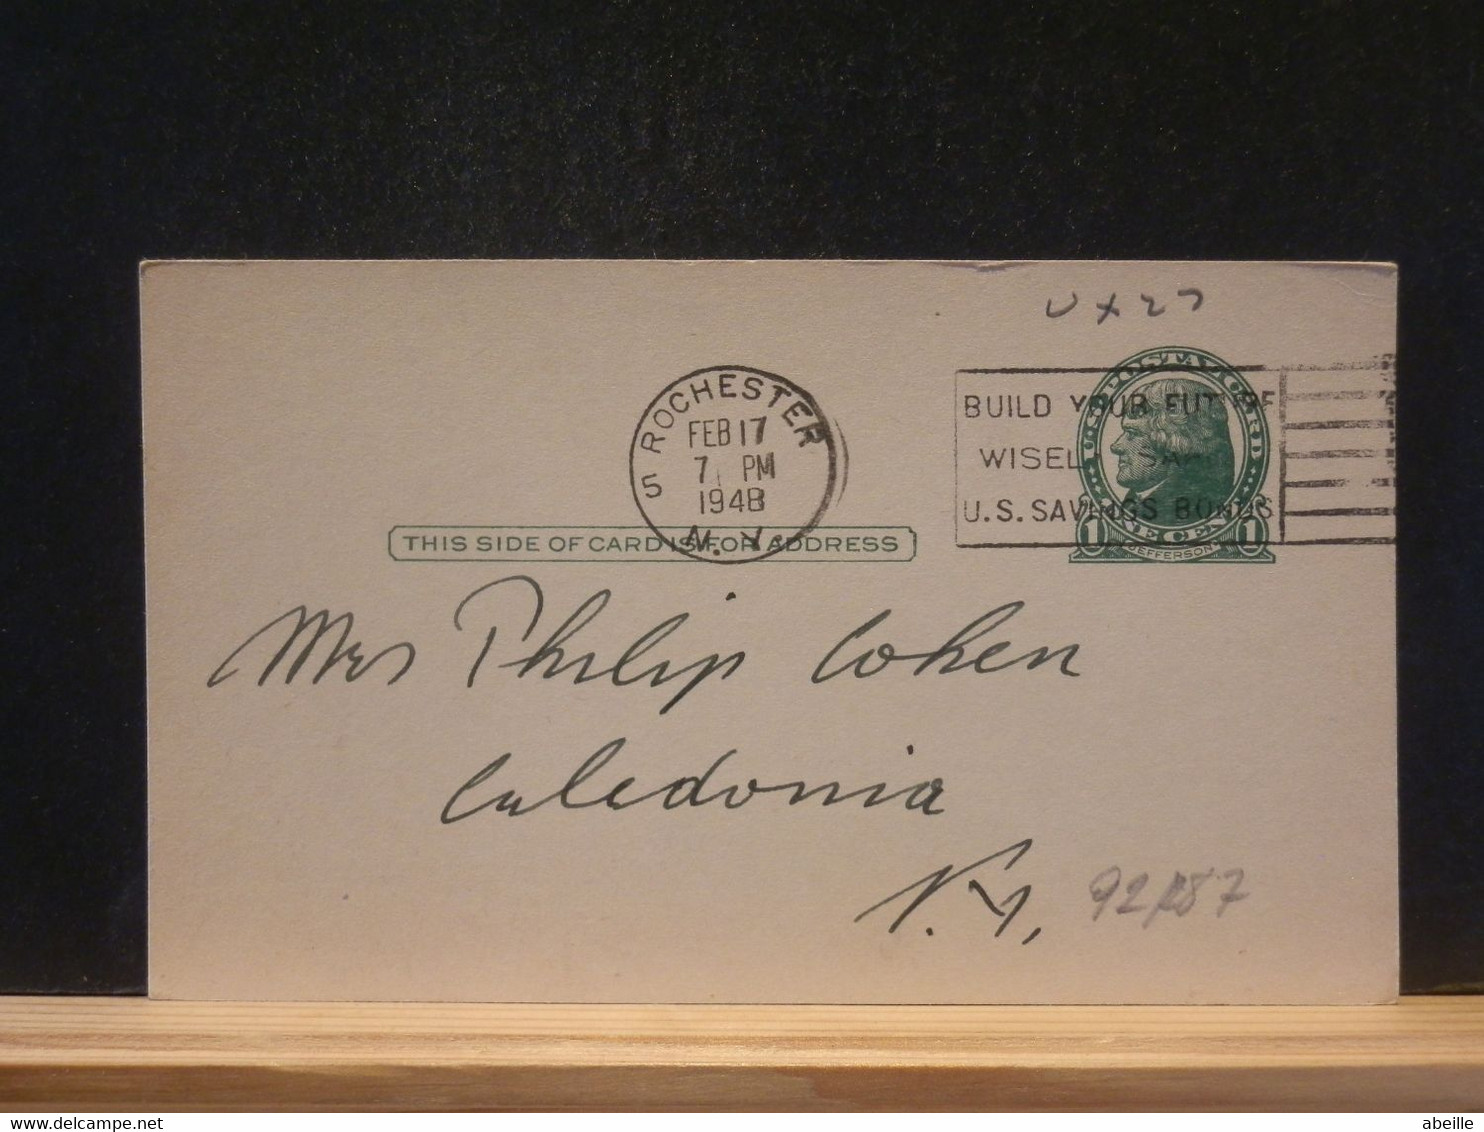 UX27
U.S. POSTAL CARD
ROCHESTER
5
FEB 17
7 PM
1948
N.Y.
BUILD YOUR FUTURE
WISELY SAVE
U.S. SAVINGS BONDS
1 ONE CENT 1
JEFFERSON
THIS SIDE OF CARD IS FOR ADDRESS
Mrs Philip Cohen
Caledonia
N.Y. 92/187
abeille